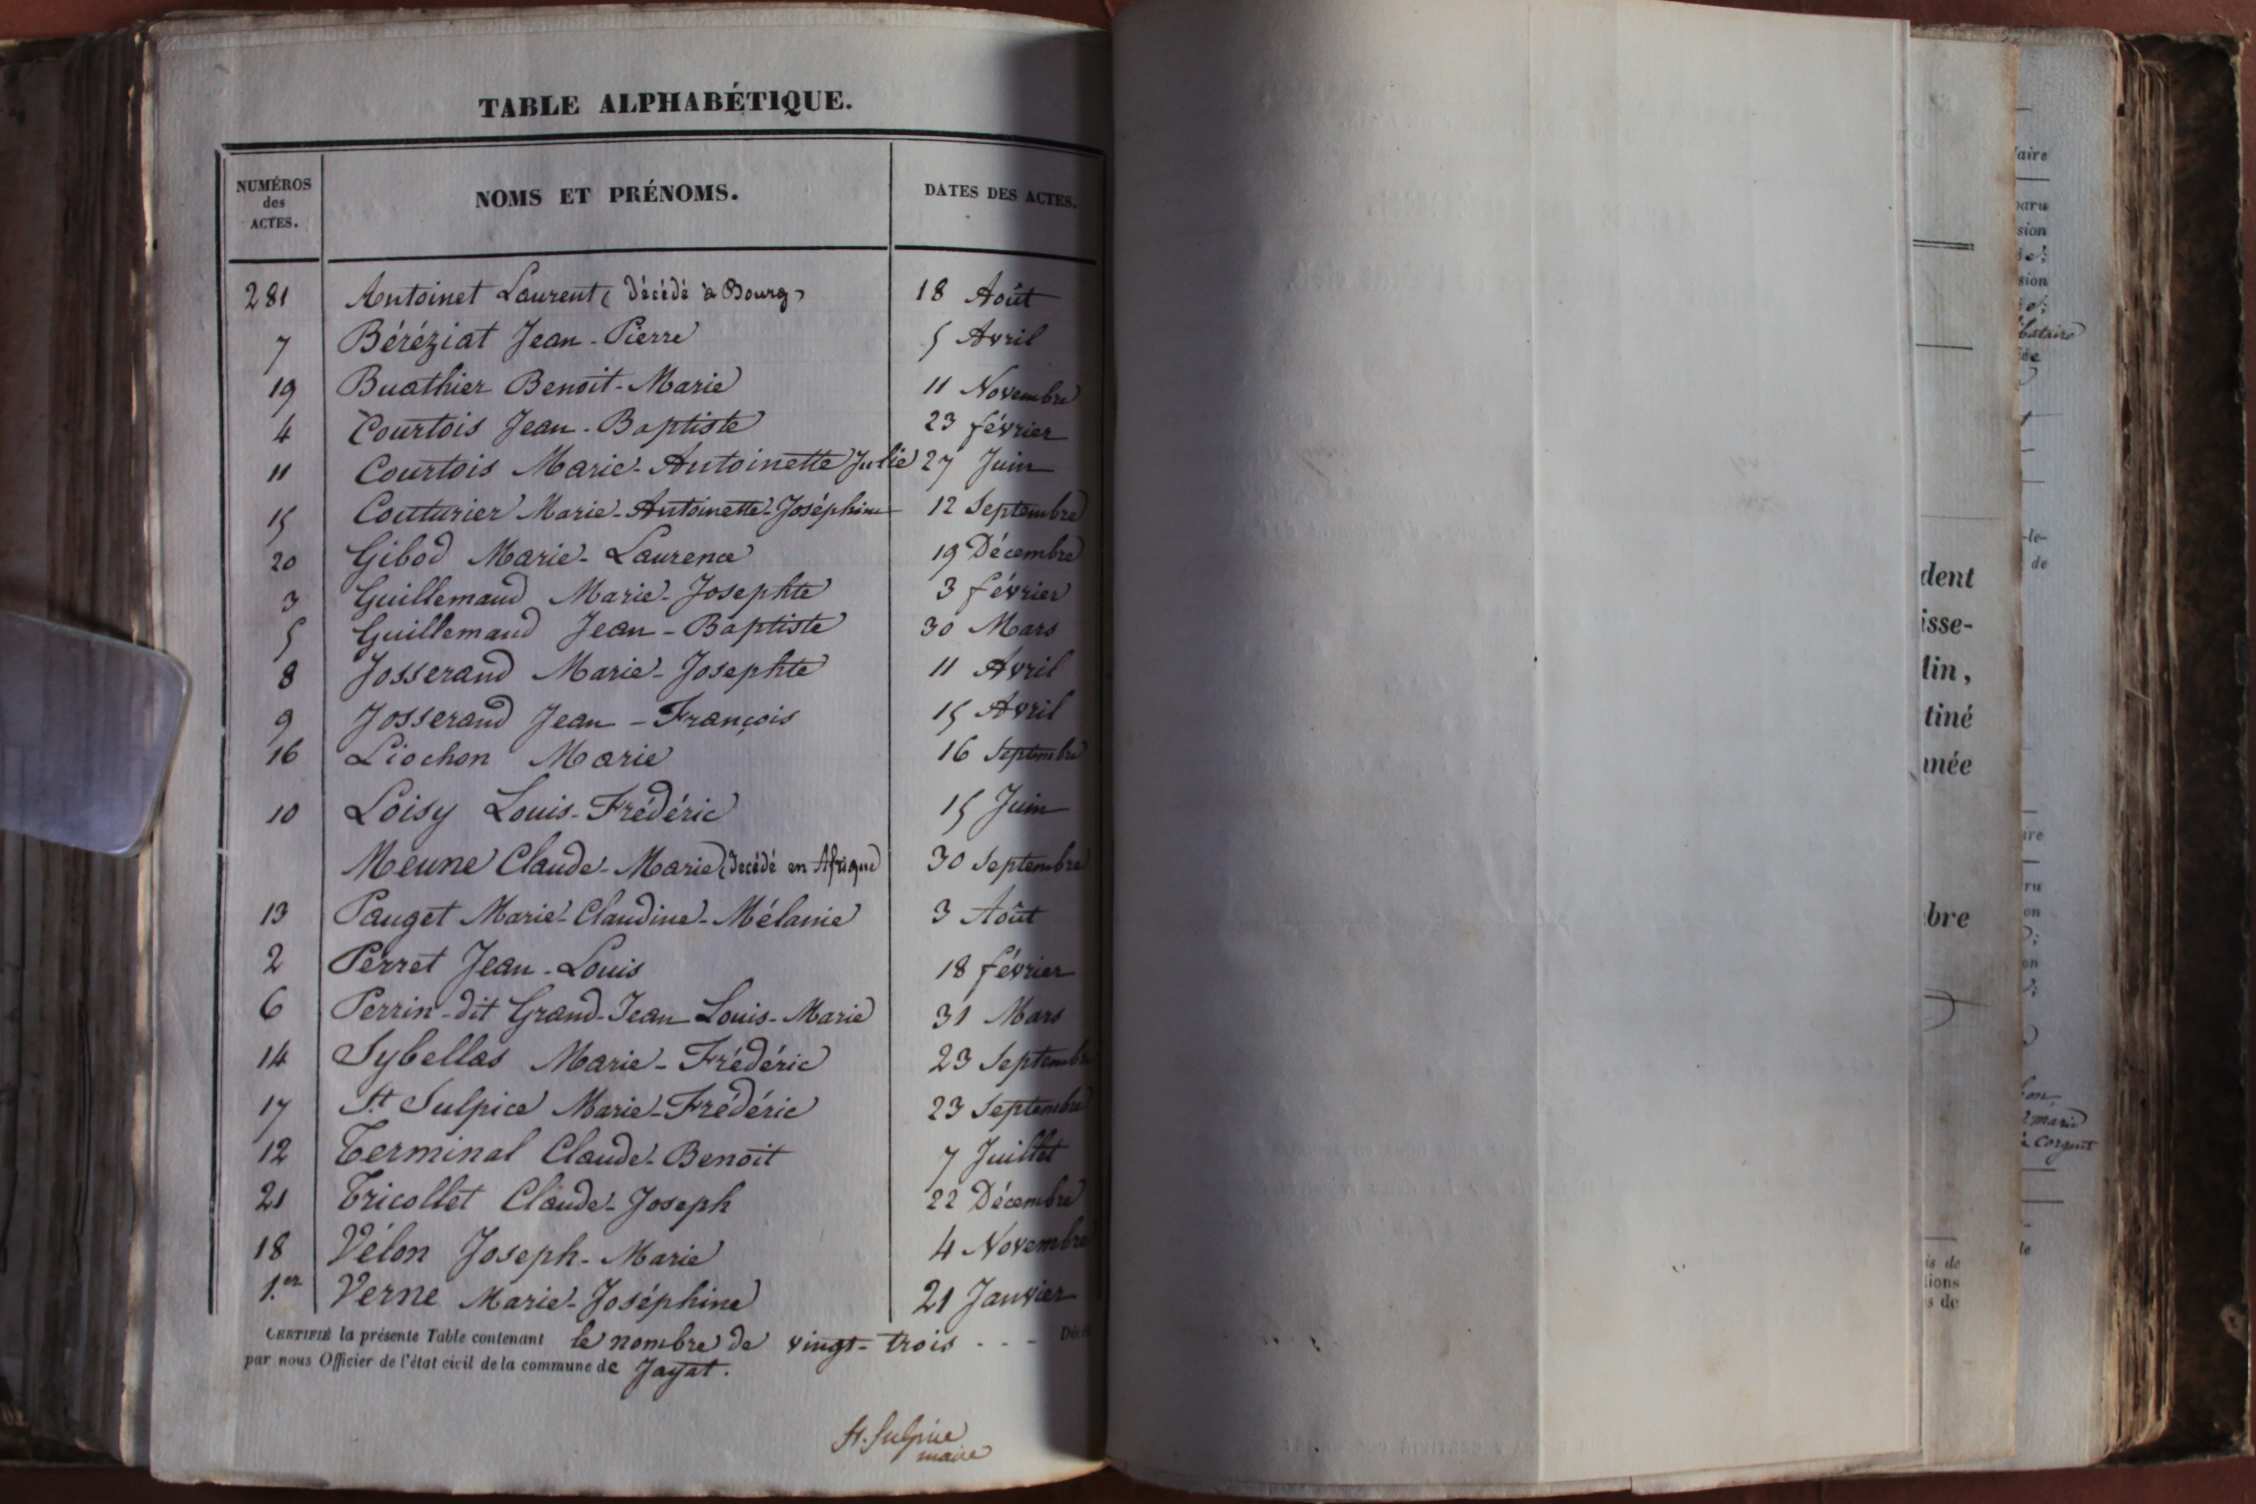 TABLE ALPHABÉTIQUE.
NUMÉROS des ACTES. NOMS ET PRÉNOMS. DATES DES ACTES.
281 Antoinet Laurent (décédé à Bourg) 18 Août
7 Béréziat Jean-Pierre 5 Avril
19 Buathier Benoit-Marie 11 Novembre
4 Courtois Jean-Baptiste 23 février
11 Courtois Marie-Antoinette Julie 27 Juin
15 Couturier Marie-Antoinette-Joséphine 12 Septembre
20 Gibod Marie-Laurence 19 Décembre
3 Guillemaud Marie-Josephte 3 février
5 Guillemaud Jean-Baptiste 30 Mars
8 Josserand Marie-Josephte 11 Avril
9 Josserand Jean-François 15 Avril
16 Liochon Marie 16 Septembre
10 Loisy Louis-Frédéric 15 Juin
Meune Claude-Marie (décédé en Afrique) 30 Septembre
13 Pauget Marie-Claudine-Mélanie 3 Août
2 Perret Jean-Louis 18 février
6 Perrin-dit Grand-Jean Louis-Marie 31 Mars
14 Sybellas Marie-Frédéric 23 Septembre
17 St Sulpice Marie-Frédéric 23 Septembre
12 Terminal Claude-Benoit 7 Juillet
21 Tricollet Claude-Joseph 22 Décembre
18 Vélon Joseph-Marie 4 Novembre
1.er Verne Marie-Joséphine 21 Janvier
CERTIFIÉ la présente Table contenant le nombre de vingt-trois - - - Décè
par nous Officier de l'état civil de la commune de Jayat.
St. Sulpice
maire
aire
paru
sion
sion
dent
isse-
lin,
tiné
nnée
-le-
de
bre
is de
tions
s de
ure
ru
on
on
marié